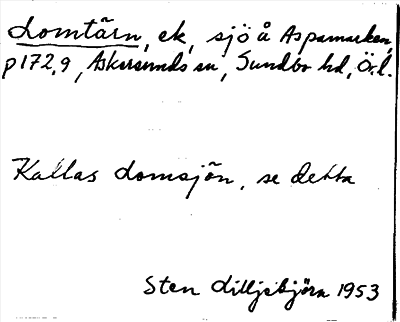 Lomtärn, ek, sjö å Aspamarken,
p 172,9, Askersunds sn, Sundbo hd, Ö.l.
Kallas Lomsjön, se detta
Sten Lilljebjörn 1953